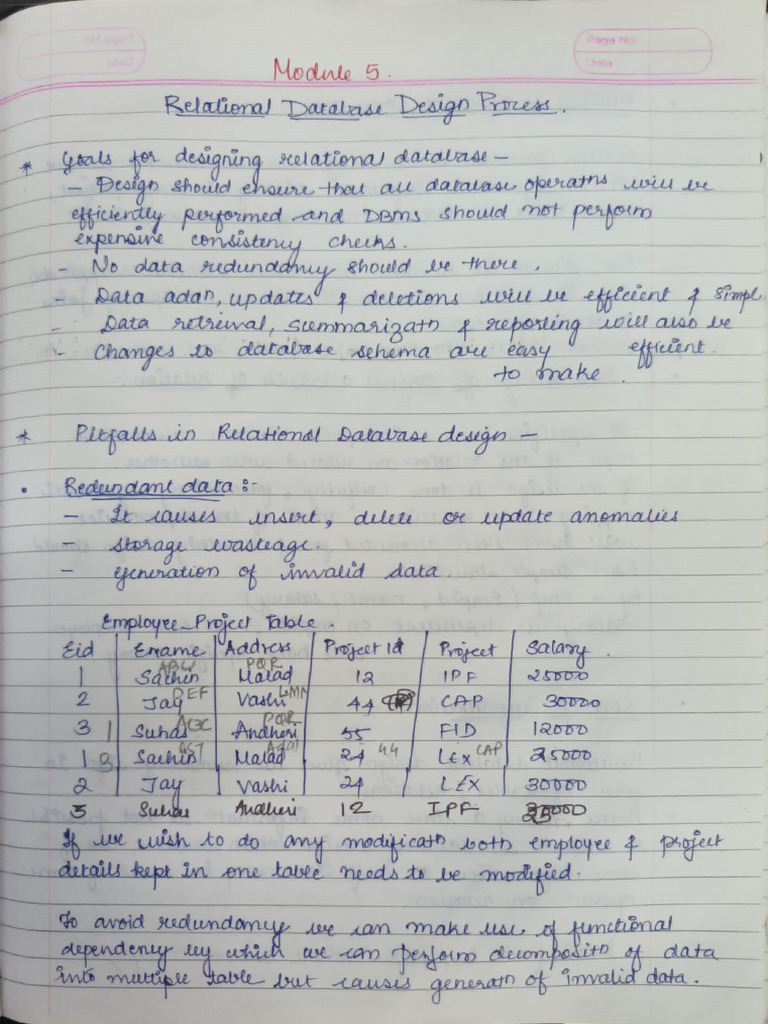 Page No.
Date
Module 5.
Relational Database Design Process.
* Goals for designing relational database –
– Design should ensure that all database operatns will be
efficiently performed and DBMS should not perform
expensive consistency checks.
– No data redundancy should be there.
– Data adan, updates & deletions will be efficient & simpl
– Data retrival, summarizatn & reporting will also be
– Changes to database schema are easy efficient.
to make.
* Pitfalls in Relational Database design –
• Redundant data :-
– It causes insert, delete or update anomalies
– Storage wasteage.
– generation of invalid data
Employee_Project Table.
Eid Ename Address Project Id Project Salary
ABC PQR
1 Sachin Malad 12 IPF 25000
2 Jay DEF Vashi LMN 44 CAP 30000
3 1 Suhas ABC Andheri PQR 55 FID 12000
1 3 Sachin GST Malad 24 44 LEX CAP 25000
2 Jay Vashi 24 LEX 30000
3 Suhas Andheri 12 IPF
If we wish to do any modificatn both employee & project
details kept in one table needs to be modified.
To avoid redundancy we can make use of functional
dependency by which we can perform decompositn of data
into multiple table but causes generatn of invalid data.